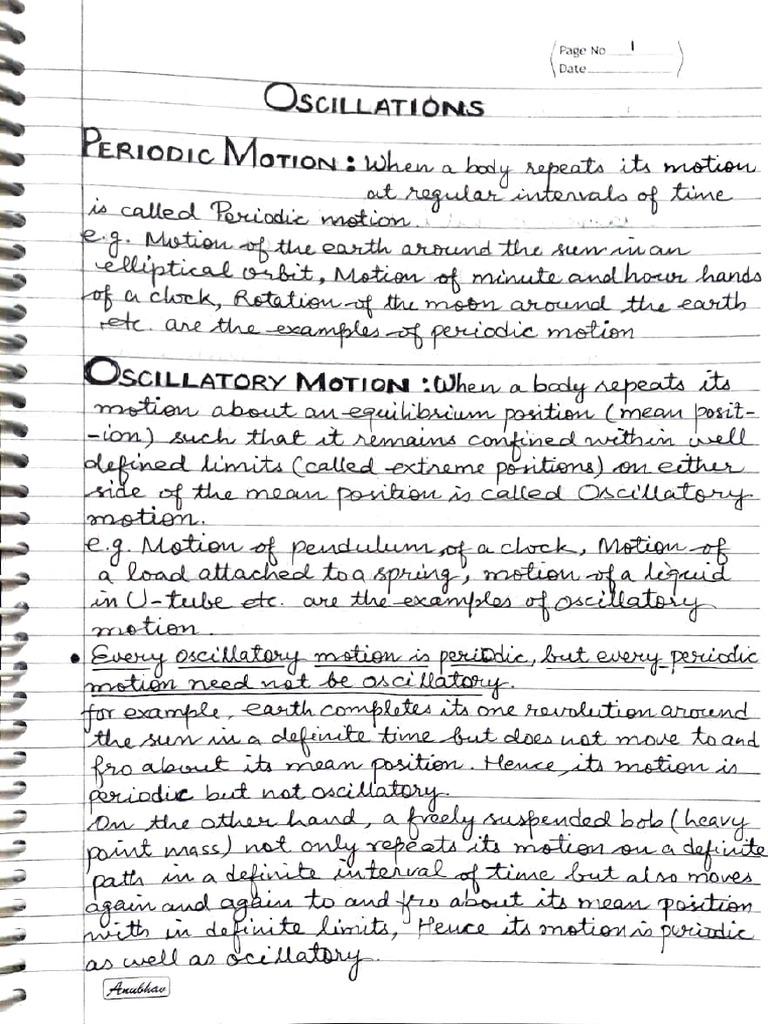 Page No 1
Date
OSCILLATIONS
PERIODIC MOTION: When a body repeats its motion
at regular intervals of time
is called Periodic motion.
e.g. Motion of the earth around the sun in an
elliptical orbit, Motion of minute and hour hands
of a clock, Rotation of the moon around the earth
etc. are the examples of periodic motion
OSCILLATORY MOTION: When a body repeats its
motion about an equilibrium position (mean posit-
-ion) such that it remains confined within well
defined limits (called extreme positions) on either
side of the mean position is called Oscillatory
motion.
e.g. Motion of pendulum of a clock, Motion of
a load attached to a spring, motion of a liquid
in U-tube etc. are the examples of oscillatory
motion.
• Every oscillatory motion is periodic, but every periodic
motion need not be oscillatory.
for example, earth completes its one revolution around
the sun in a definite time but does not move to and
fro about its mean position. Hence, its motion is
periodic but not oscillatory.
On the other hand, a freely suspended bob (heavy
point mass) not only repeats its motion on a definite
path in a definite interval of time but also moves
again and again to and fro about its mean position
with in definite limits, Hence its motion is periodic
as well as ocillatory.
Anubhav